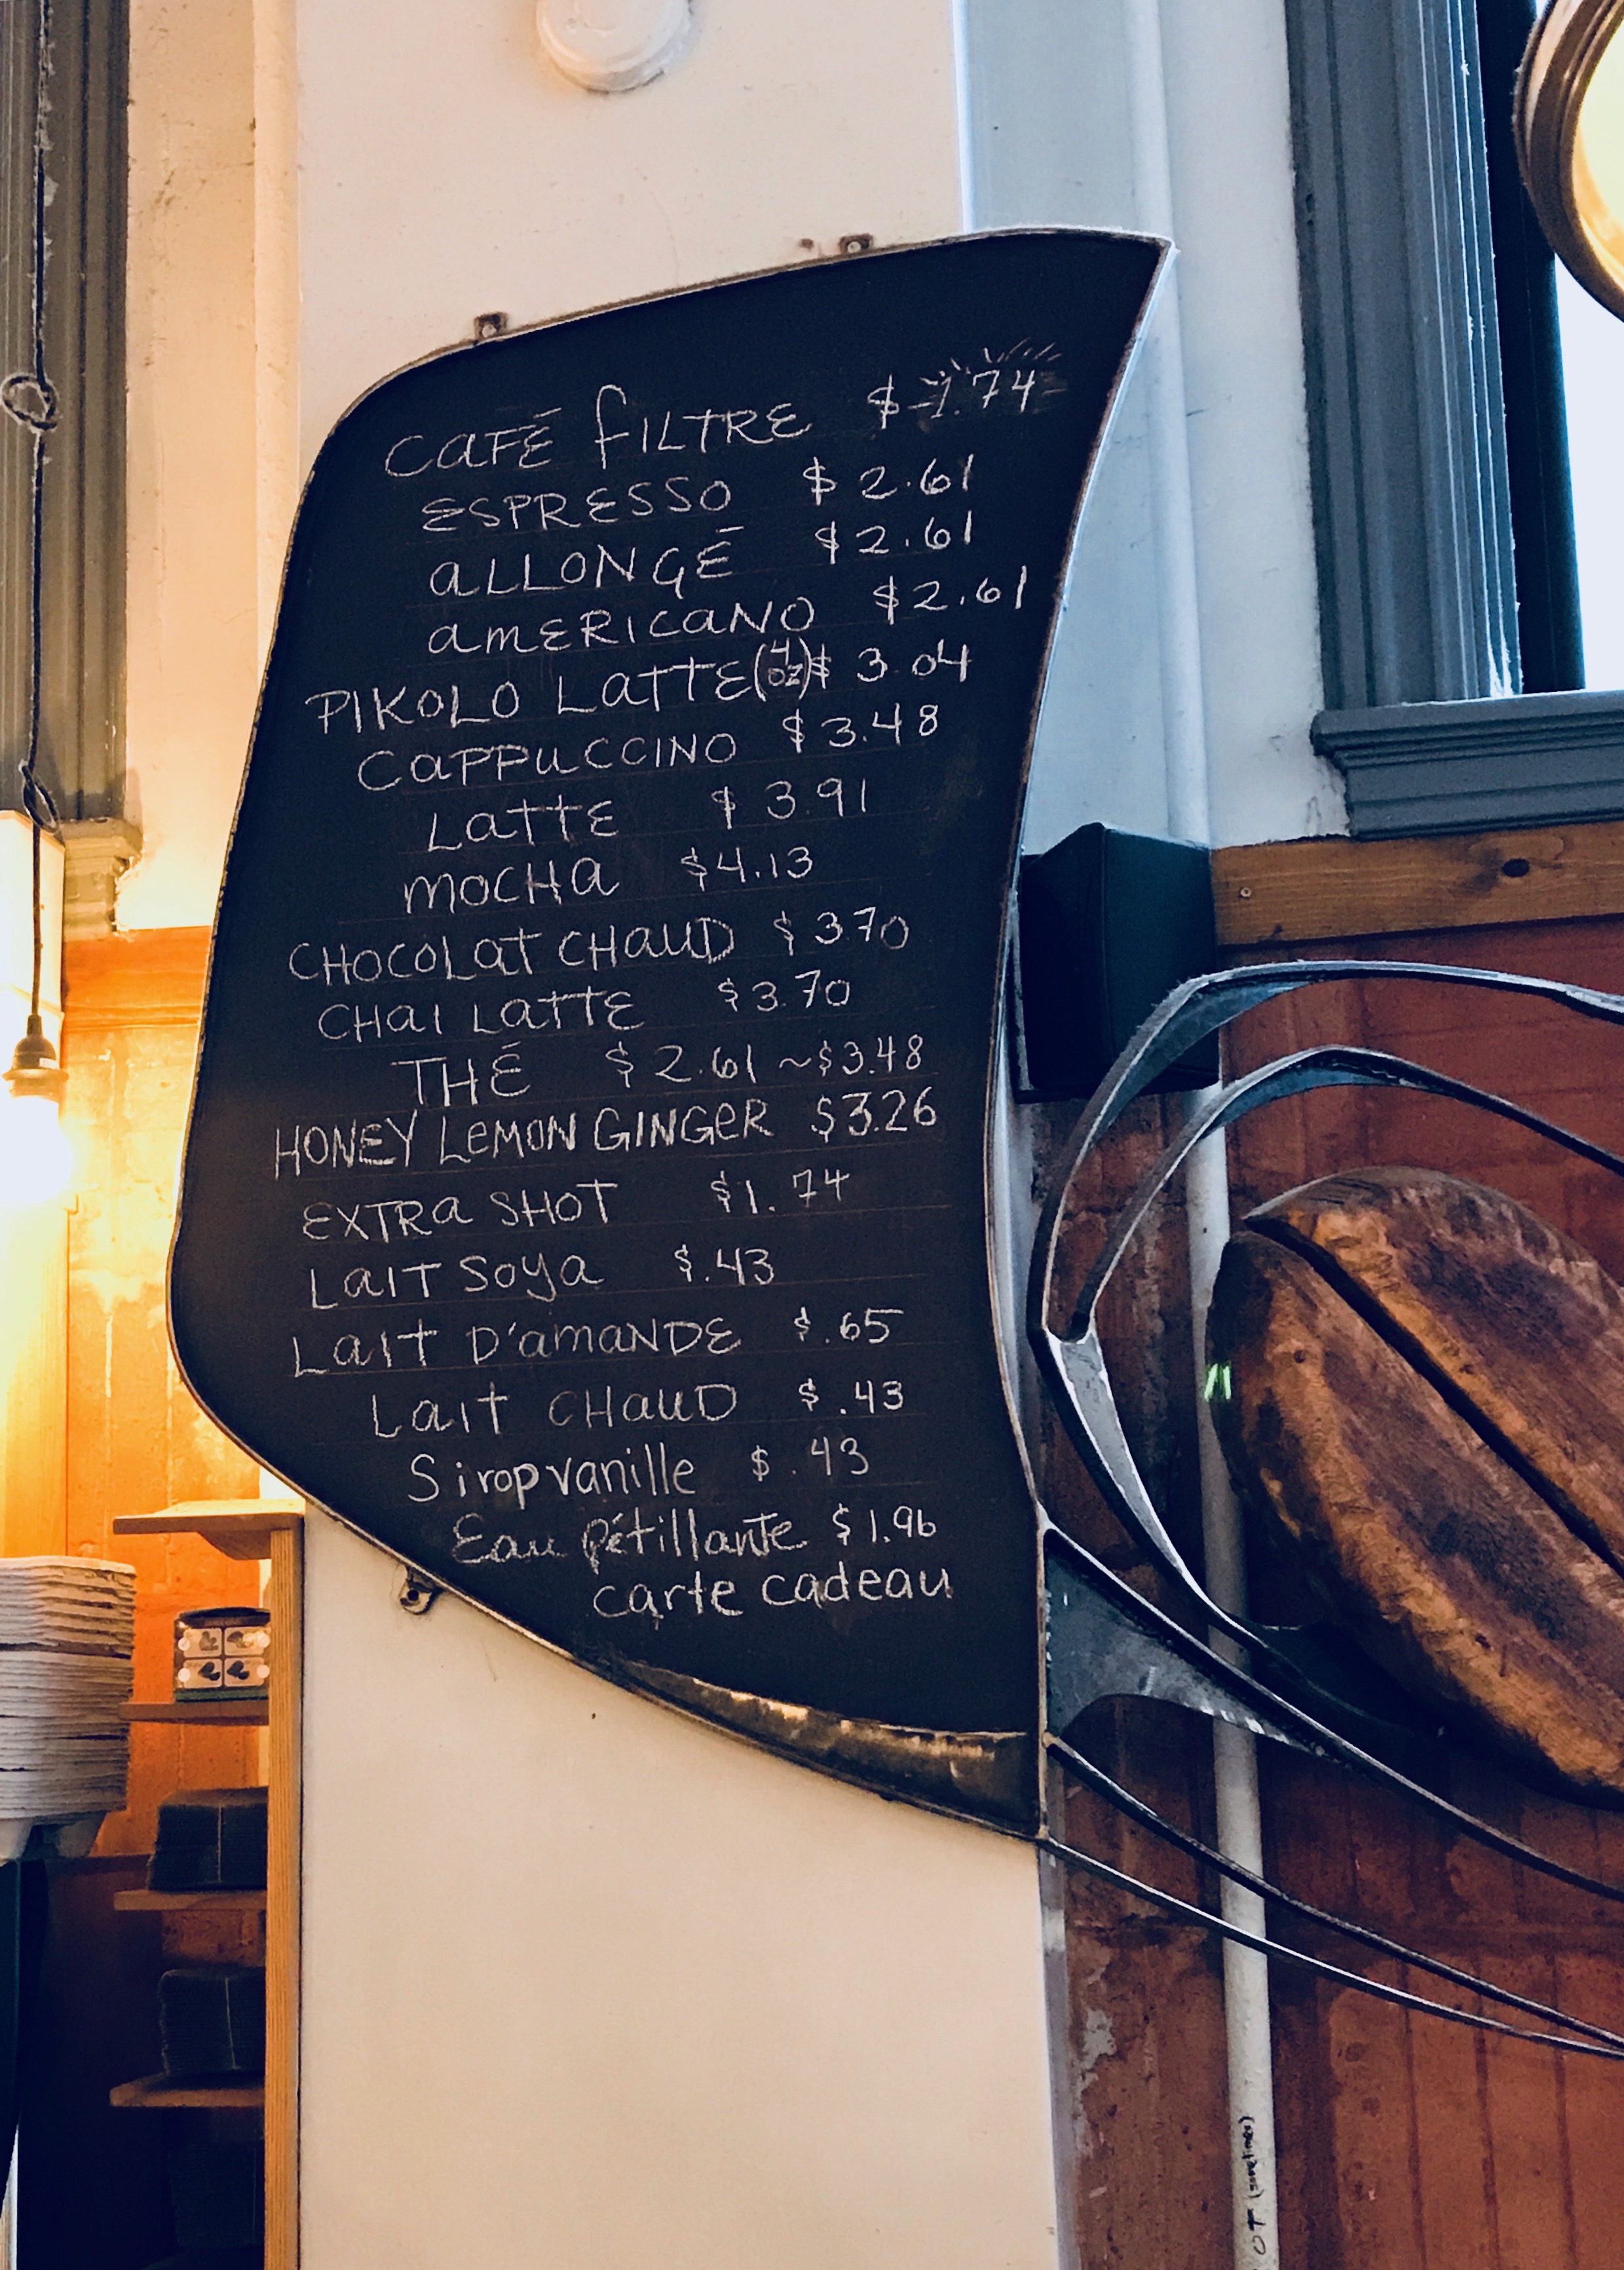 CAFÉ FILTRE $1.74
ESPRESSO $2.61
ALLONGÉ $2.61
AMERICANO $2.61
PIKOLO LATTE (4 oz) $3.04
CAPPUCCINO $3.48
LATTE $3.91
MOCHA $4.13
CHOCOLAT CHAUD $3.70
CHAI LATTE $3.70
THÉ $2.61 ~ $3.48
HONEY LEMON GINGER $3.26
EXTRA SHOT $1.74
LAIT SOYA $.43
LAIT D'AMANDE $.65
LAIT CHAUD $.43
Sirop vanille $.43
Eau pétillante $1.96
carte cadeau